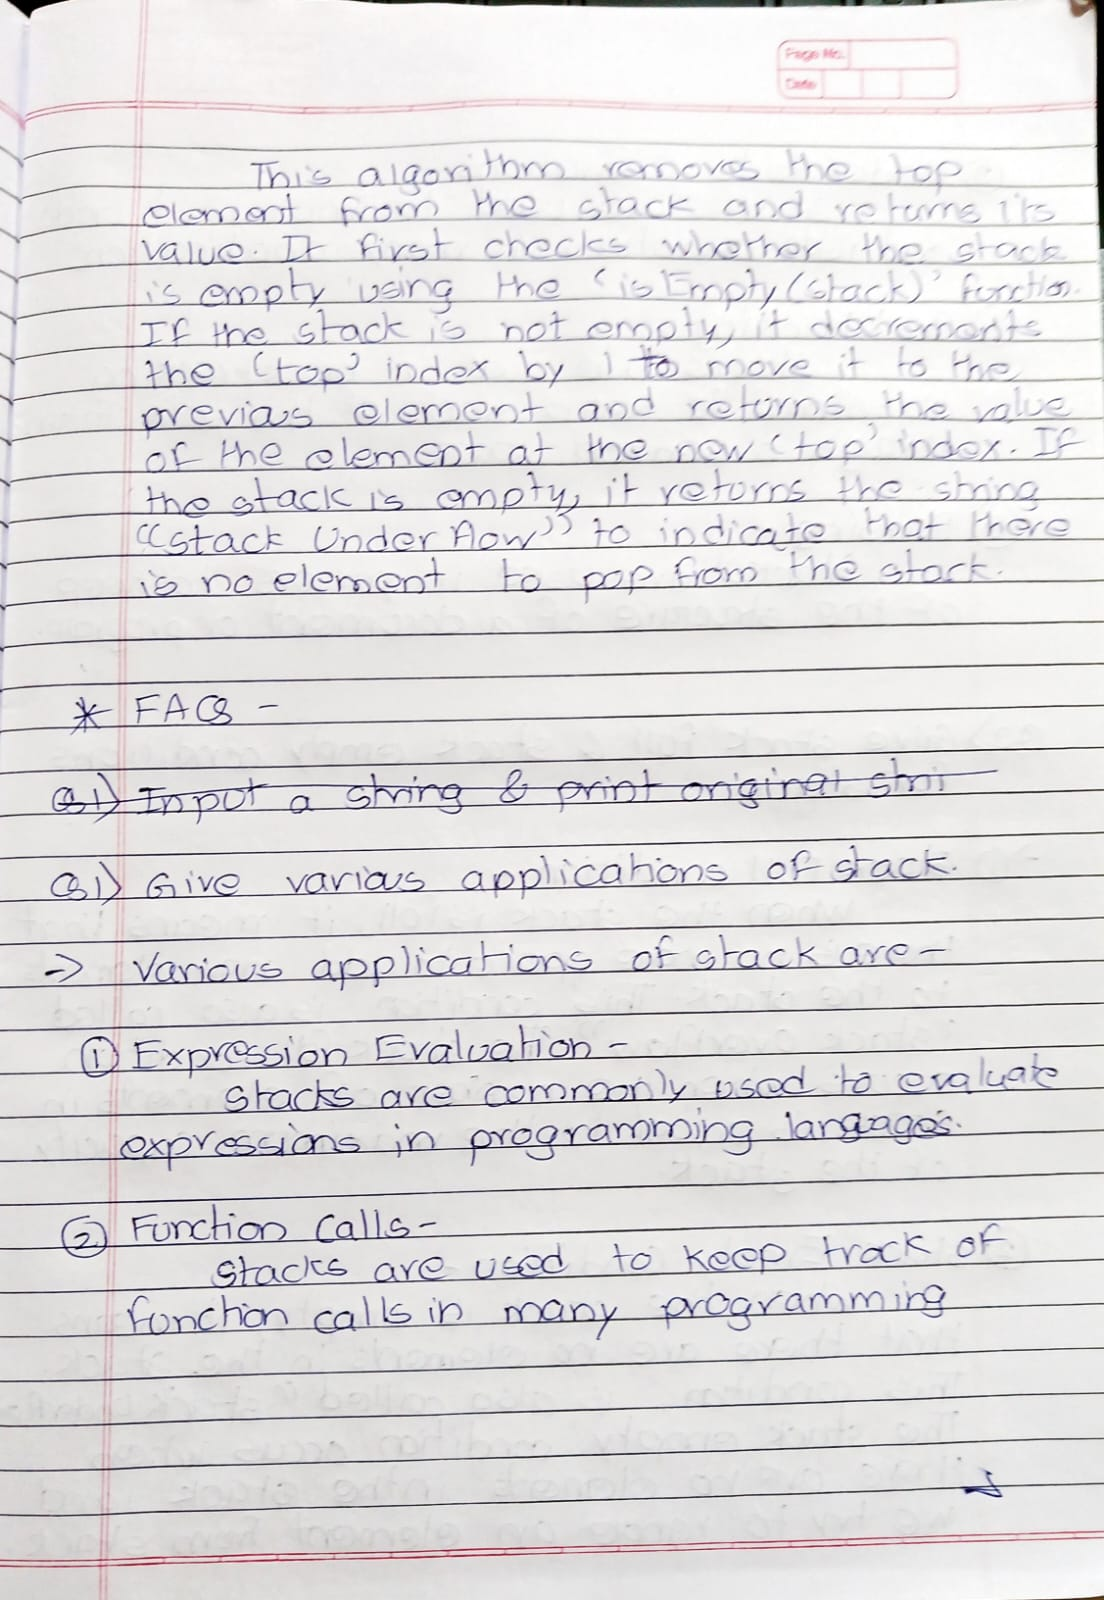 Page No.
Date
This algorithm removes the top
element from the stack and returns its
value. It first checks whether the stack
is empty using the 'isEmpty(stack)' function.
If the stack is not empty, it decrements
the 'top' index by 1 to move it to the
previous element and returns the value
of the element at the new 'top' index. If
the stack is empty, it returns the string
"stack Underflow" to indicate that there
is no element to pop from the stack.
* FAQs -
Q1) Input a string & print original stri
Q1) Give various applications of stack.
-> Various applications of stack are -
① Expression Evaluation -
stacks are commonly used to evaluate
expressions in programming languages.
② Function calls -
stacks are used to keep track of
function calls in many programming